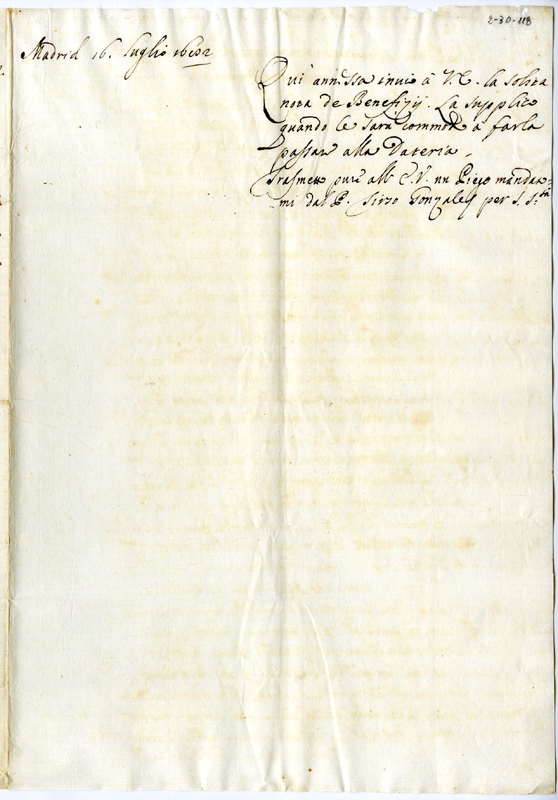 2-30-118
Madrid 16. Luglio 1692
Qui annessa invio à V. E. la solita
nota de Benefizij. La supplico
quando le sarà commodo à farla
passar alla Dateria.
Trasmetto pure all' E. V. un Piego mandato-
mi dal P. Tirso Gonzalez per S. S.tà